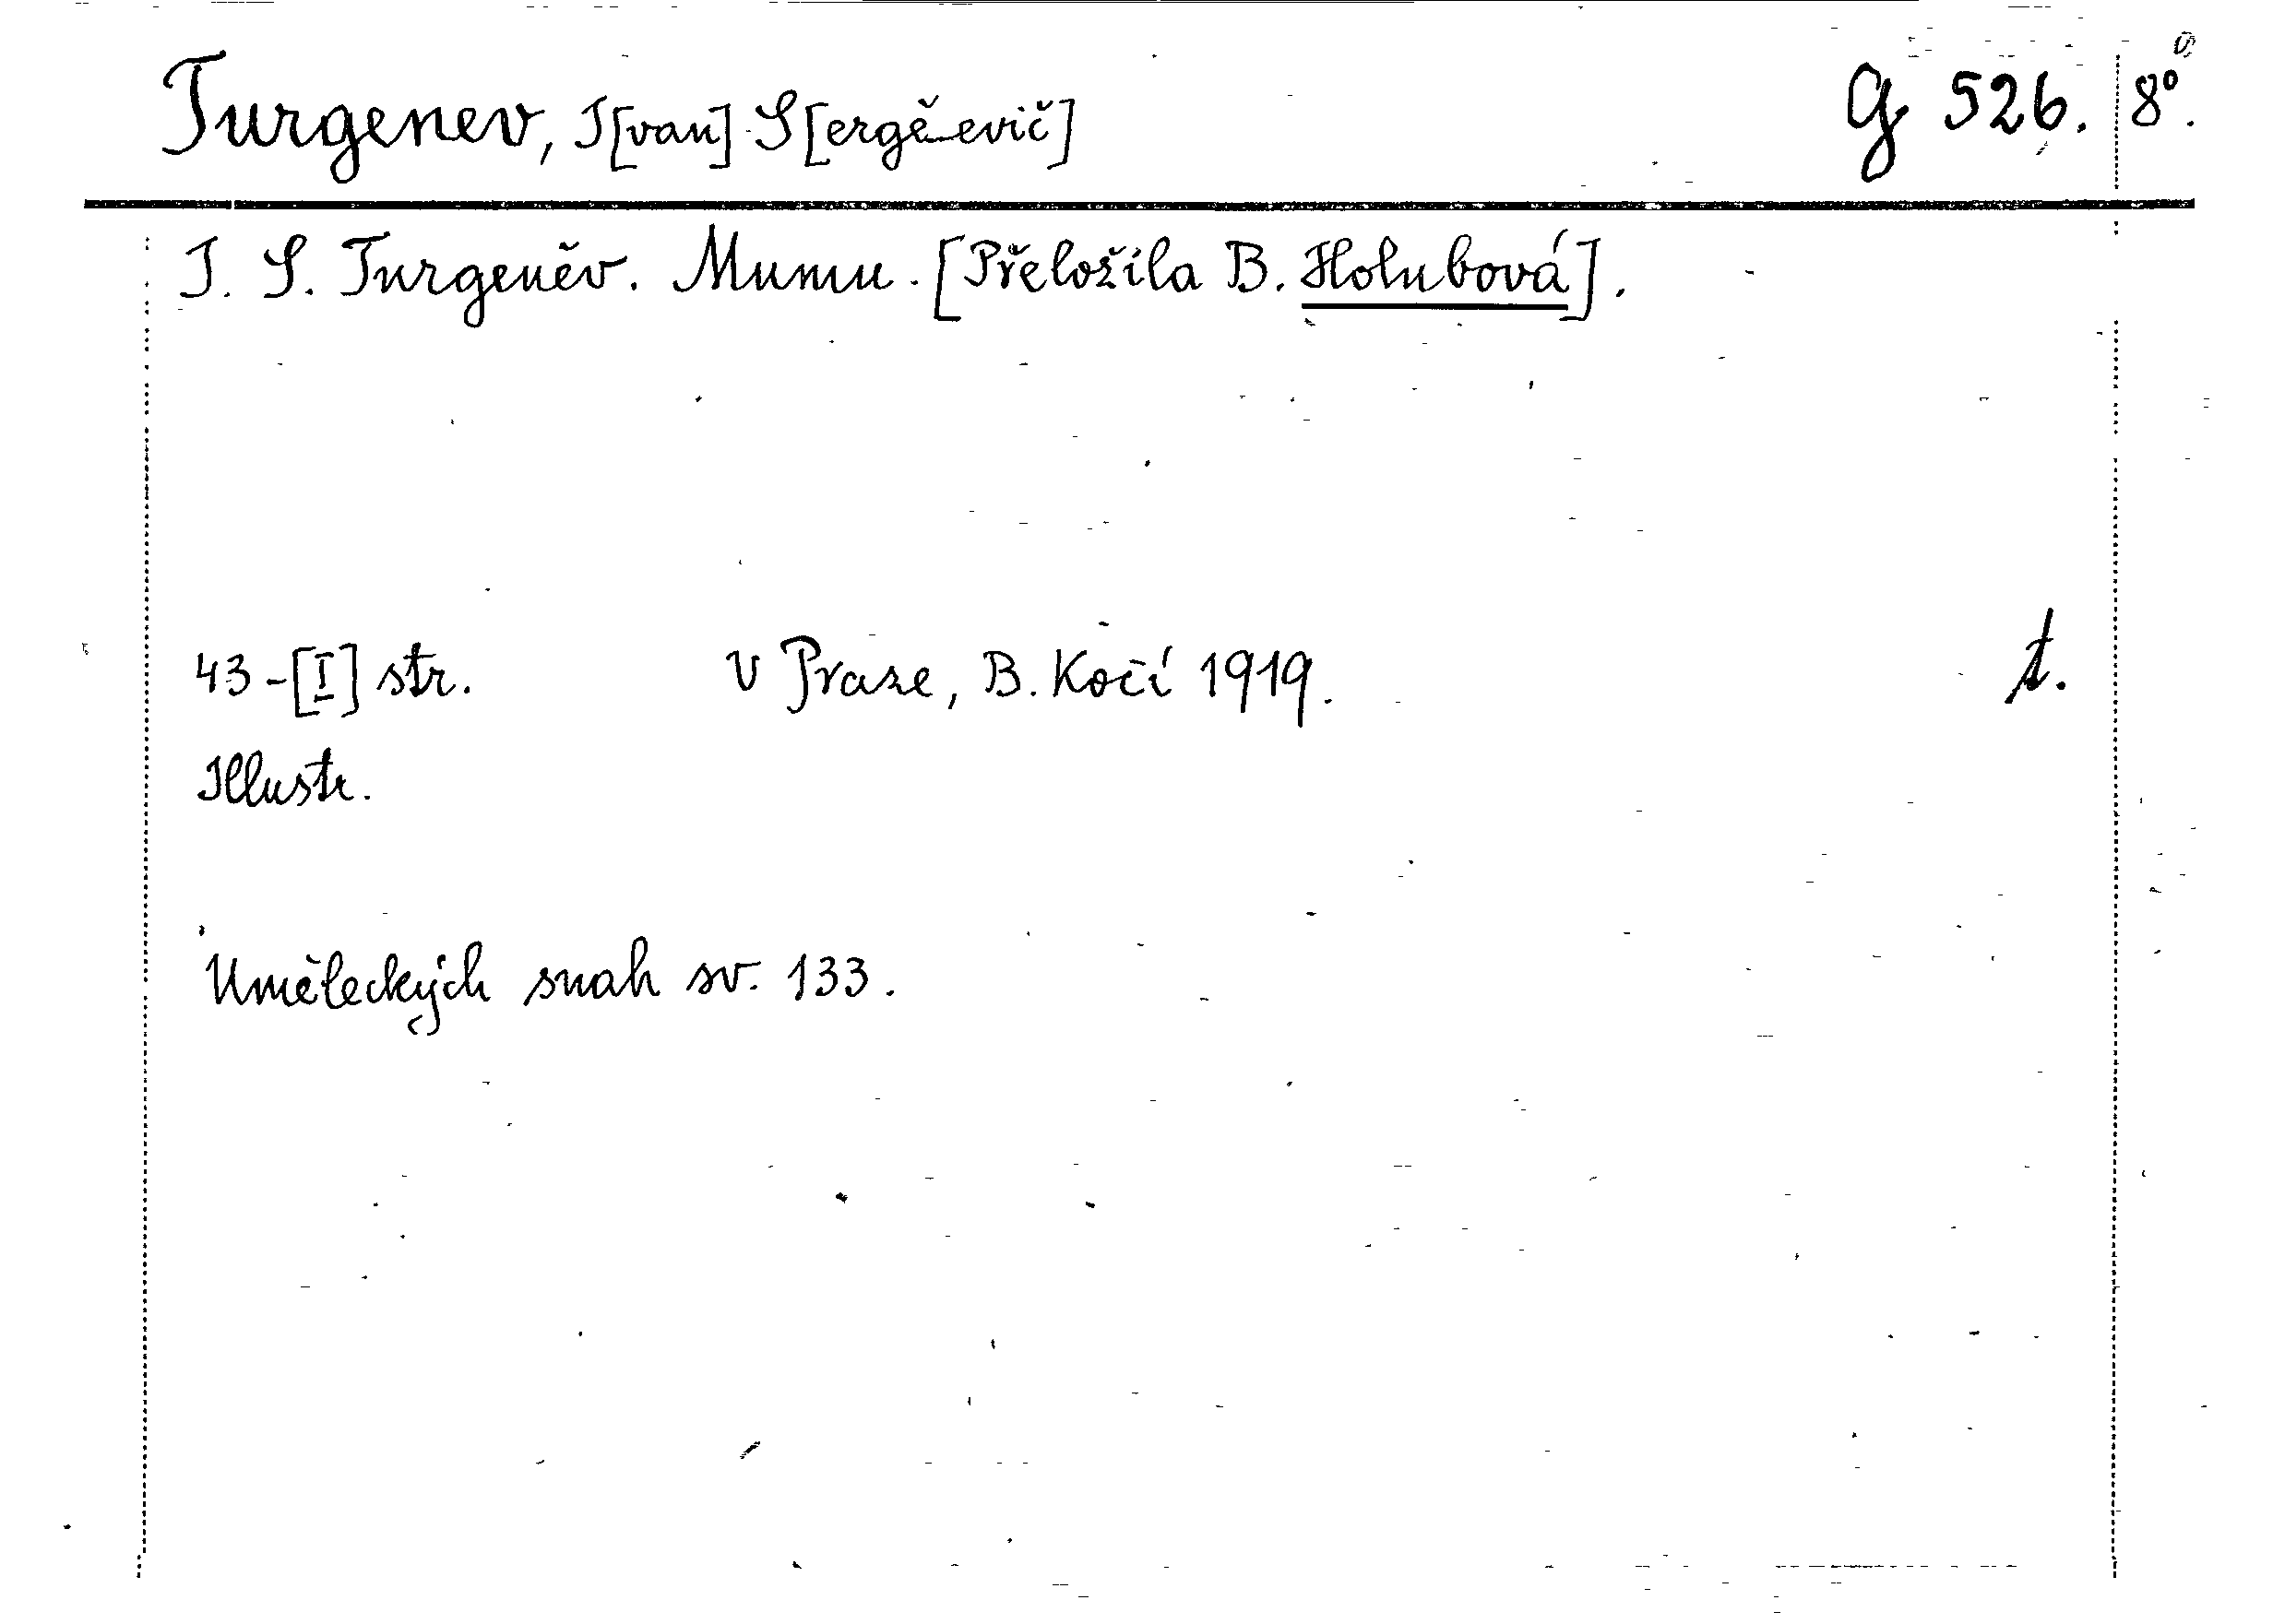 Turgenev, I[van] S[ergě-evič] G 526. 8°.
I. S. Turgeněv. Mumu. [Přeložila B. Holubová].
43-[I] str. V Praze, B. Kočí 1919. t.
Illustr.
Uměleckých snah sv. 133.